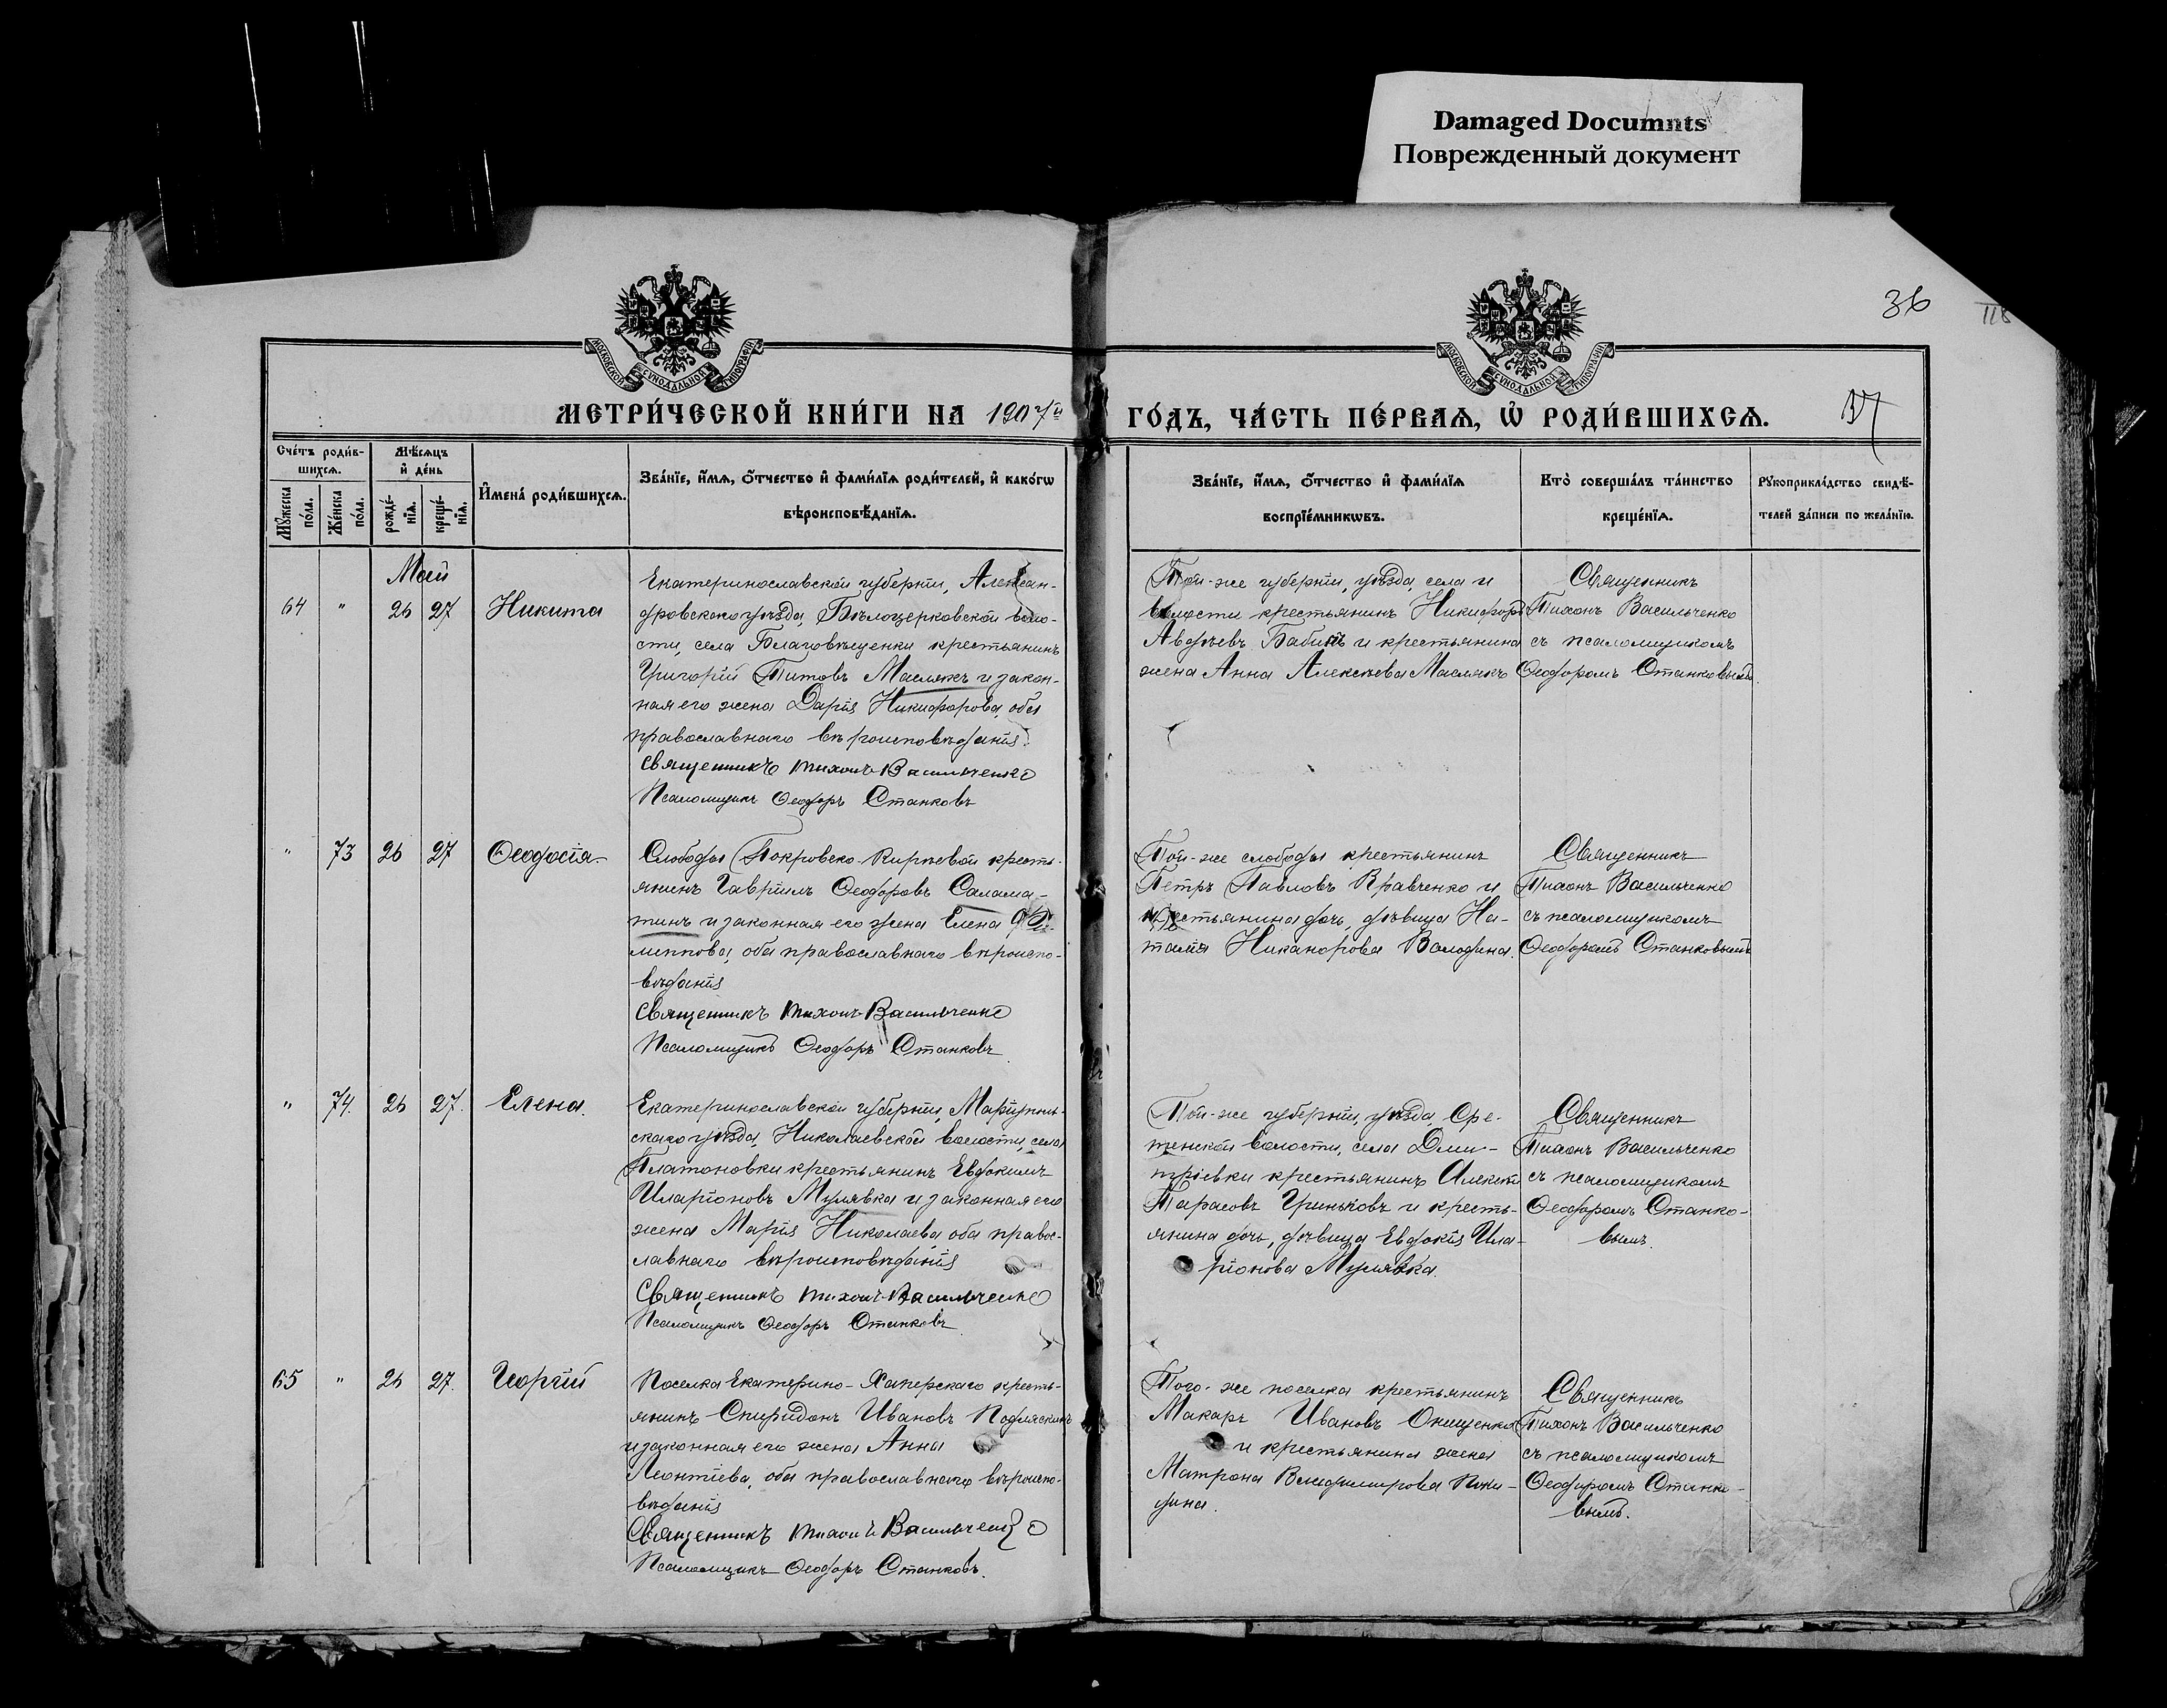 Damaged Documnts
Поврежденный документ
36
118
37
МОСКОВСКОЙ СѴНОДАЛЬНОЙ ТИПОГРАФІИ
МОСКОВСКОЙ СѴНОДАЛЬНОЙ ТИПОГРАФІИ
МЕТРИ́ЧЕСКОЙ КНИ́ГИ НА 1907й ГО́ДЪ, ЧА́СТЬ ПЕ́РВАѦ, Ѡ҆ РОДИ́ВШИХСѦ.
Сче́тъ роди́в-
шихсѧ.
Мѣ́сѧцъ
и҆ де́нь
Мꙋ́жеска
по́ла.
Же́нска
по́ла.
рожде́-
нїѧ.
креще́-
нїѧ.
И҆мена̀ роди́вшихсѧ.
Зва́нїе, и҆́мѧ, ѻ҆́тчество и҆ фами́лїѧ роди́телей, и҆ како́гѡ
вѣроисповѣ́данїѧ.
Зва́нїе, и҆́мѧ, ѻ҆́тчество и҆ фами́лїѧ
воспрїе́мникѡвъ.
Кто̀ соверша́лъ та́инство
креще́нїѧ.
Рꙋкоприкла́дство свидѣ́-
телей за́писи по жела́нїю.
Май
64 " 26 27 Никита
Екатеринославской губерніи, Алексан-
дровскаго уѣзда, Бѣлоцерковской воло-
сти, села Благовѣщенки крестьянинъ
Григорій Титовъ Маслякъ и закон-
ная его жена Дарія Никифорова, оба
православнаго вѣроисповѣданія.
Священникъ Тихонъ Васильченко
Псаломщикъ Ѳеодоръ Станковъ
Той-же губерніи, уѣзда, села и
волости крестьянинъ Никифоръ
Авдѣевъ Бабичъ и крестьянина
жена Анна Алексѣева Маслякъ
Священникъ
Тихонъ Васильченко
съ псаломщикомъ
Ѳеодоромъ Станковымъ.
" 73 26 27 Ѳеодосія
Слободы Покровско-Кирѣевой кресть-
янинъ Гавріилъ Ѳеодоровъ Салама-
тинъ и законная его жена Елена Фи-
липпова, оба православнаго вѣроиспо-
вѣданія
Священникъ Тихонъ Васильченко
Псаломщикъ Ѳеодоръ Станковъ
Той-же слободы крестьянинъ
Петръ Павловъ Кравченко и
крестьянина дочь, дѣвица На-
талія Никанорова Володина.
Священникъ
Тихонъ Васильченко
съ псаломщикомъ
Ѳеодоромъ Станковымъ
" 74. 26 27. Елена.
Екатеринославской губерніи, Маріуполь-
скаго уѣзда, Николаевской волости, села
Платоновки крестьянинъ Евдокимъ
Иларіоновъ Мулявка и законная его
жена Марія Николаева оба правос-
лавнаго вѣроисповѣданія
Священникъ Тихонъ Васильченко
Псаломщикъ Ѳеодоръ Станковъ
Той-же губерніи, уѣзда, Сре-
тенской волости, села Дми-
тріевки крестьянинъ Алексѣй
Тарасовъ Гриньковъ и кресть-
янина дочь, дѣвица Евдокія Ила-
ріонова Мулявка.
Священникъ
Тихонъ Васильченко
съ псаломщикомъ
Ѳеодоромъ Станко-
вымъ.
65 " 26 27. Георгій
Поселка Екатерино-Хаперскаго кресть-
янинъ Спиридонъ Ивановъ Подляскинъ
и законная его жена Анна
Леонтіева, оба православнаго вѣроиспо-
вѣданія
Священникъ Тихонъ Васильченко
Псаломщикъ Ѳеодоръ Станковъ.
Того-же поселка крестьянинъ
Макаръ Ивановъ Онищенко
и крестьянина жена
Матрона Владимирова
Священникъ
Тихонъ Васильченко
съ псаломщикомъ
Ѳеодоромъ Станко-
вымъ.